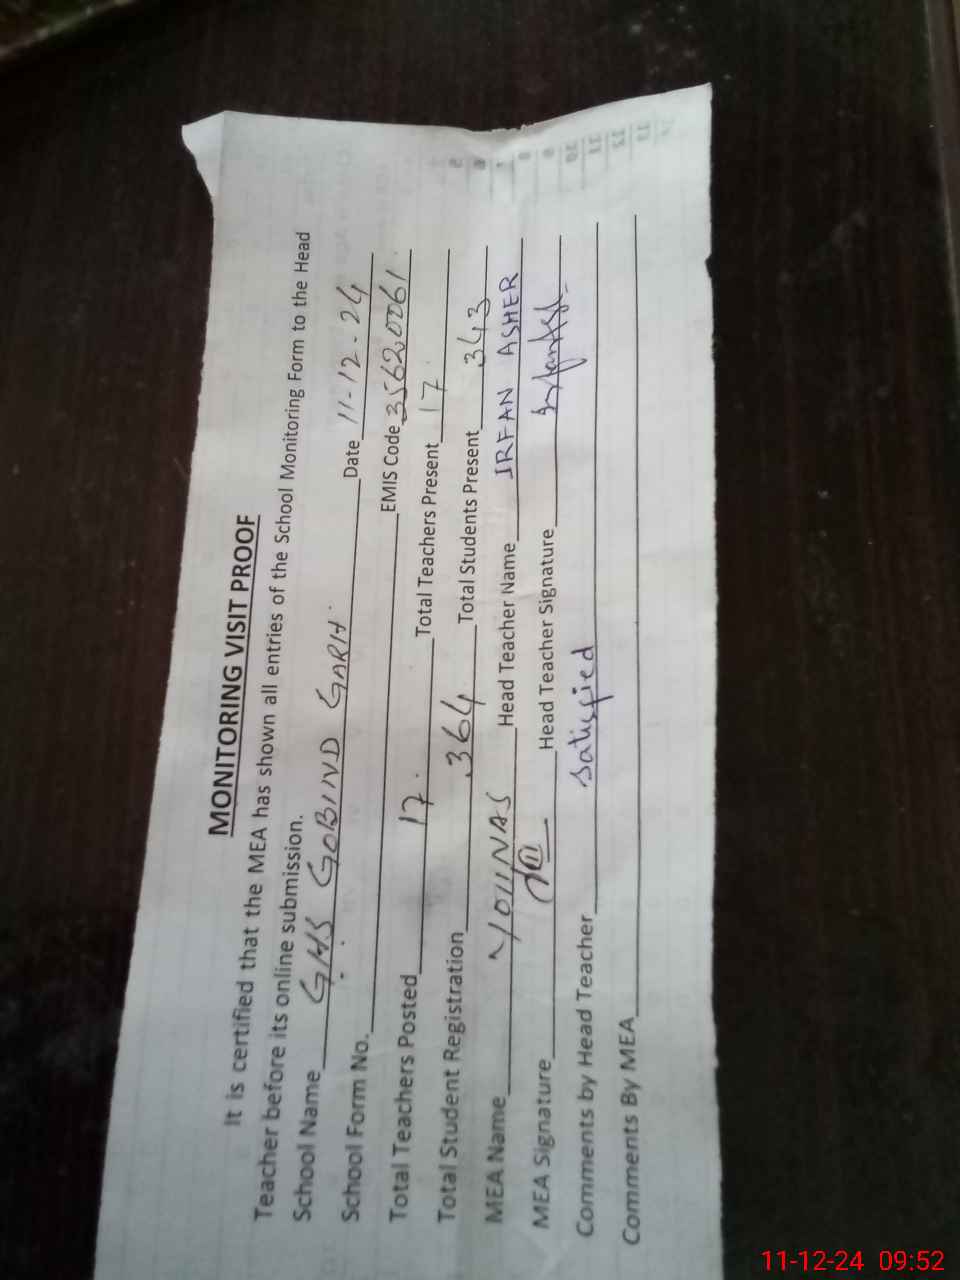 MONITORING VISIT PROOF
It is certified that the MEA has shown all entries of the School Monitoring Form to the Head
Teacher before its online submission.
School Name GHS GOBIND GARH. Date 11-12-24
School Form No. EMIS Code 35620061
Total Teachers Posted 17. Total Teachers Present 17.
Total Student Registration 364 Total Students Present 343
MEA Name YOUNAS Head Teacher Name IRFAN ASHER
MEA Signature Head Teacher Signature
Comments by Head Teacher Satisfied
Comments By MEA
11-12-24 09:52